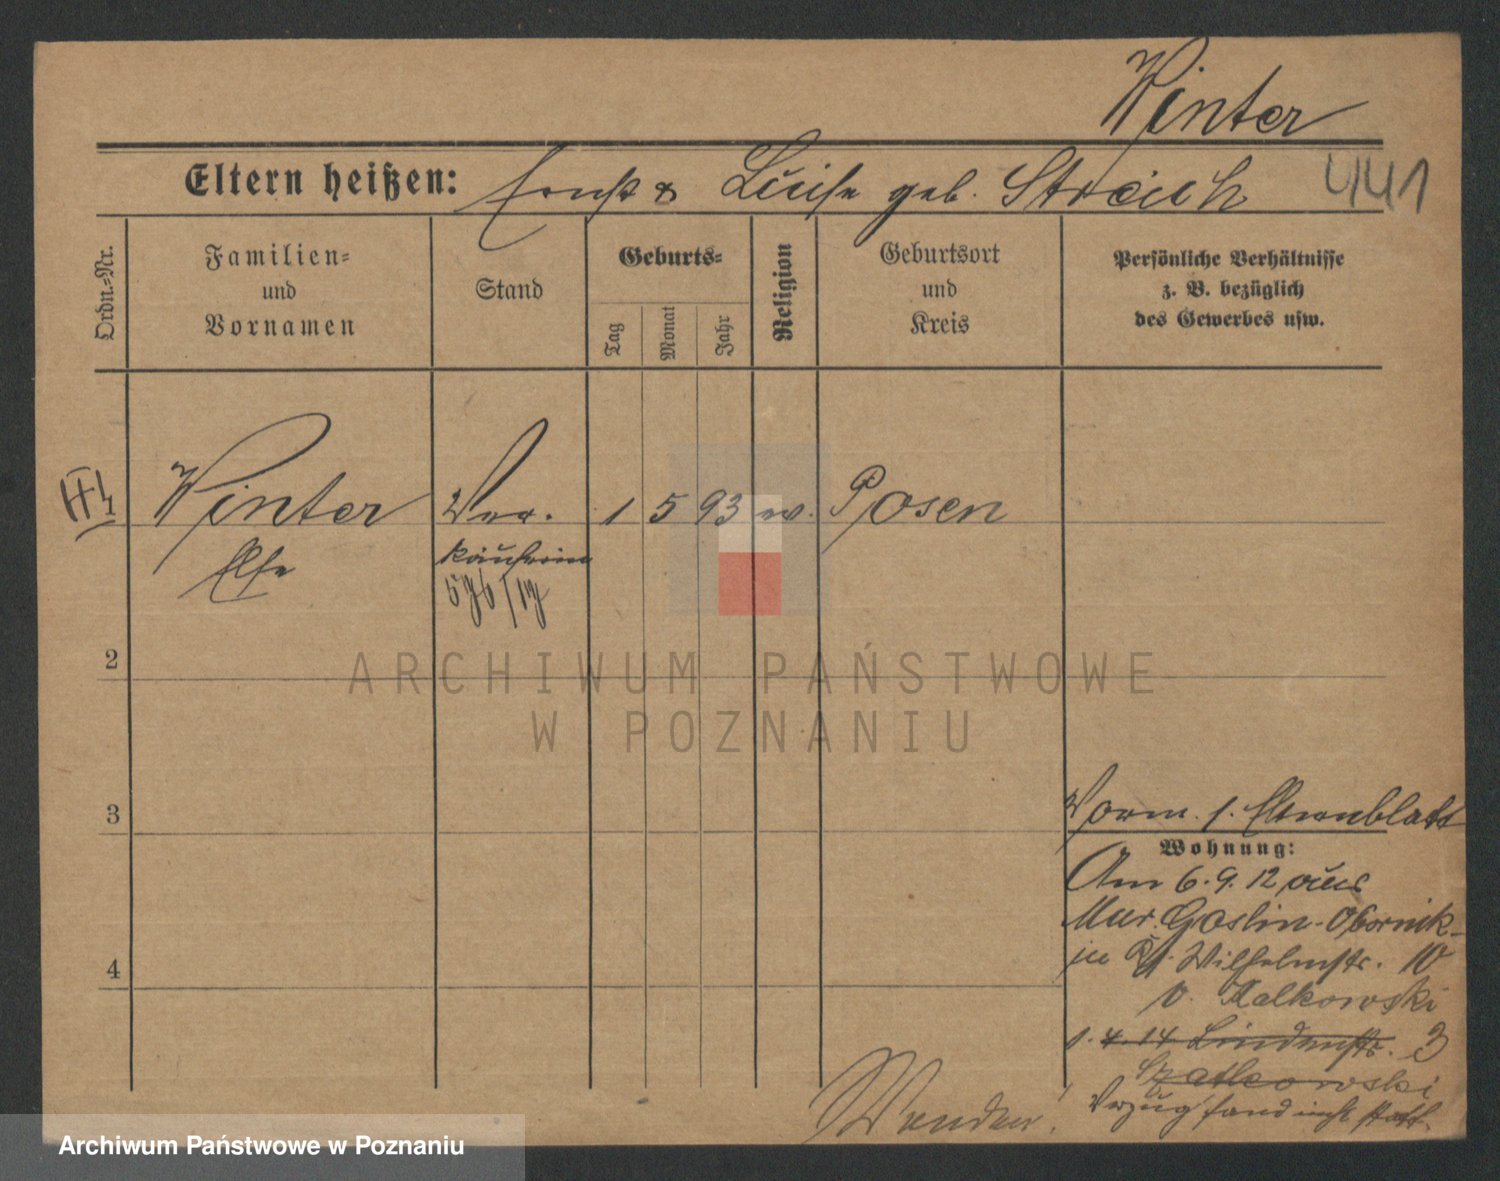 Winter
441
Eltern heißen: Ernst & Luise geb. Strauch
Ordn.-Nr.
Familien=
und
Vornamen
Stand
Geburts=
Tag
Monat
Jahr
Religion
Geburtsort
und
Kreis
Persönliche Verhältnisse
z. B. bezüglich
des Gewerbes usw.
1 Winter Ver- 1 5 93 ev. Posen
Else käuferin
2
ARCHIWUM PAŃSTWOWE
W POZNANIU
3
Vorm. s. Elternblatt
Wohnung:
Am 6.9.12 aus
Mur. Goslin-Obornik-
in Wilhelmstr. 10
b. Kalkowski
1.4.14 Lindenstr. 3
Szatkowski
Verzug fand nicht statt.
4
Wenden!
Archiwum Państwowe w Poznaniu